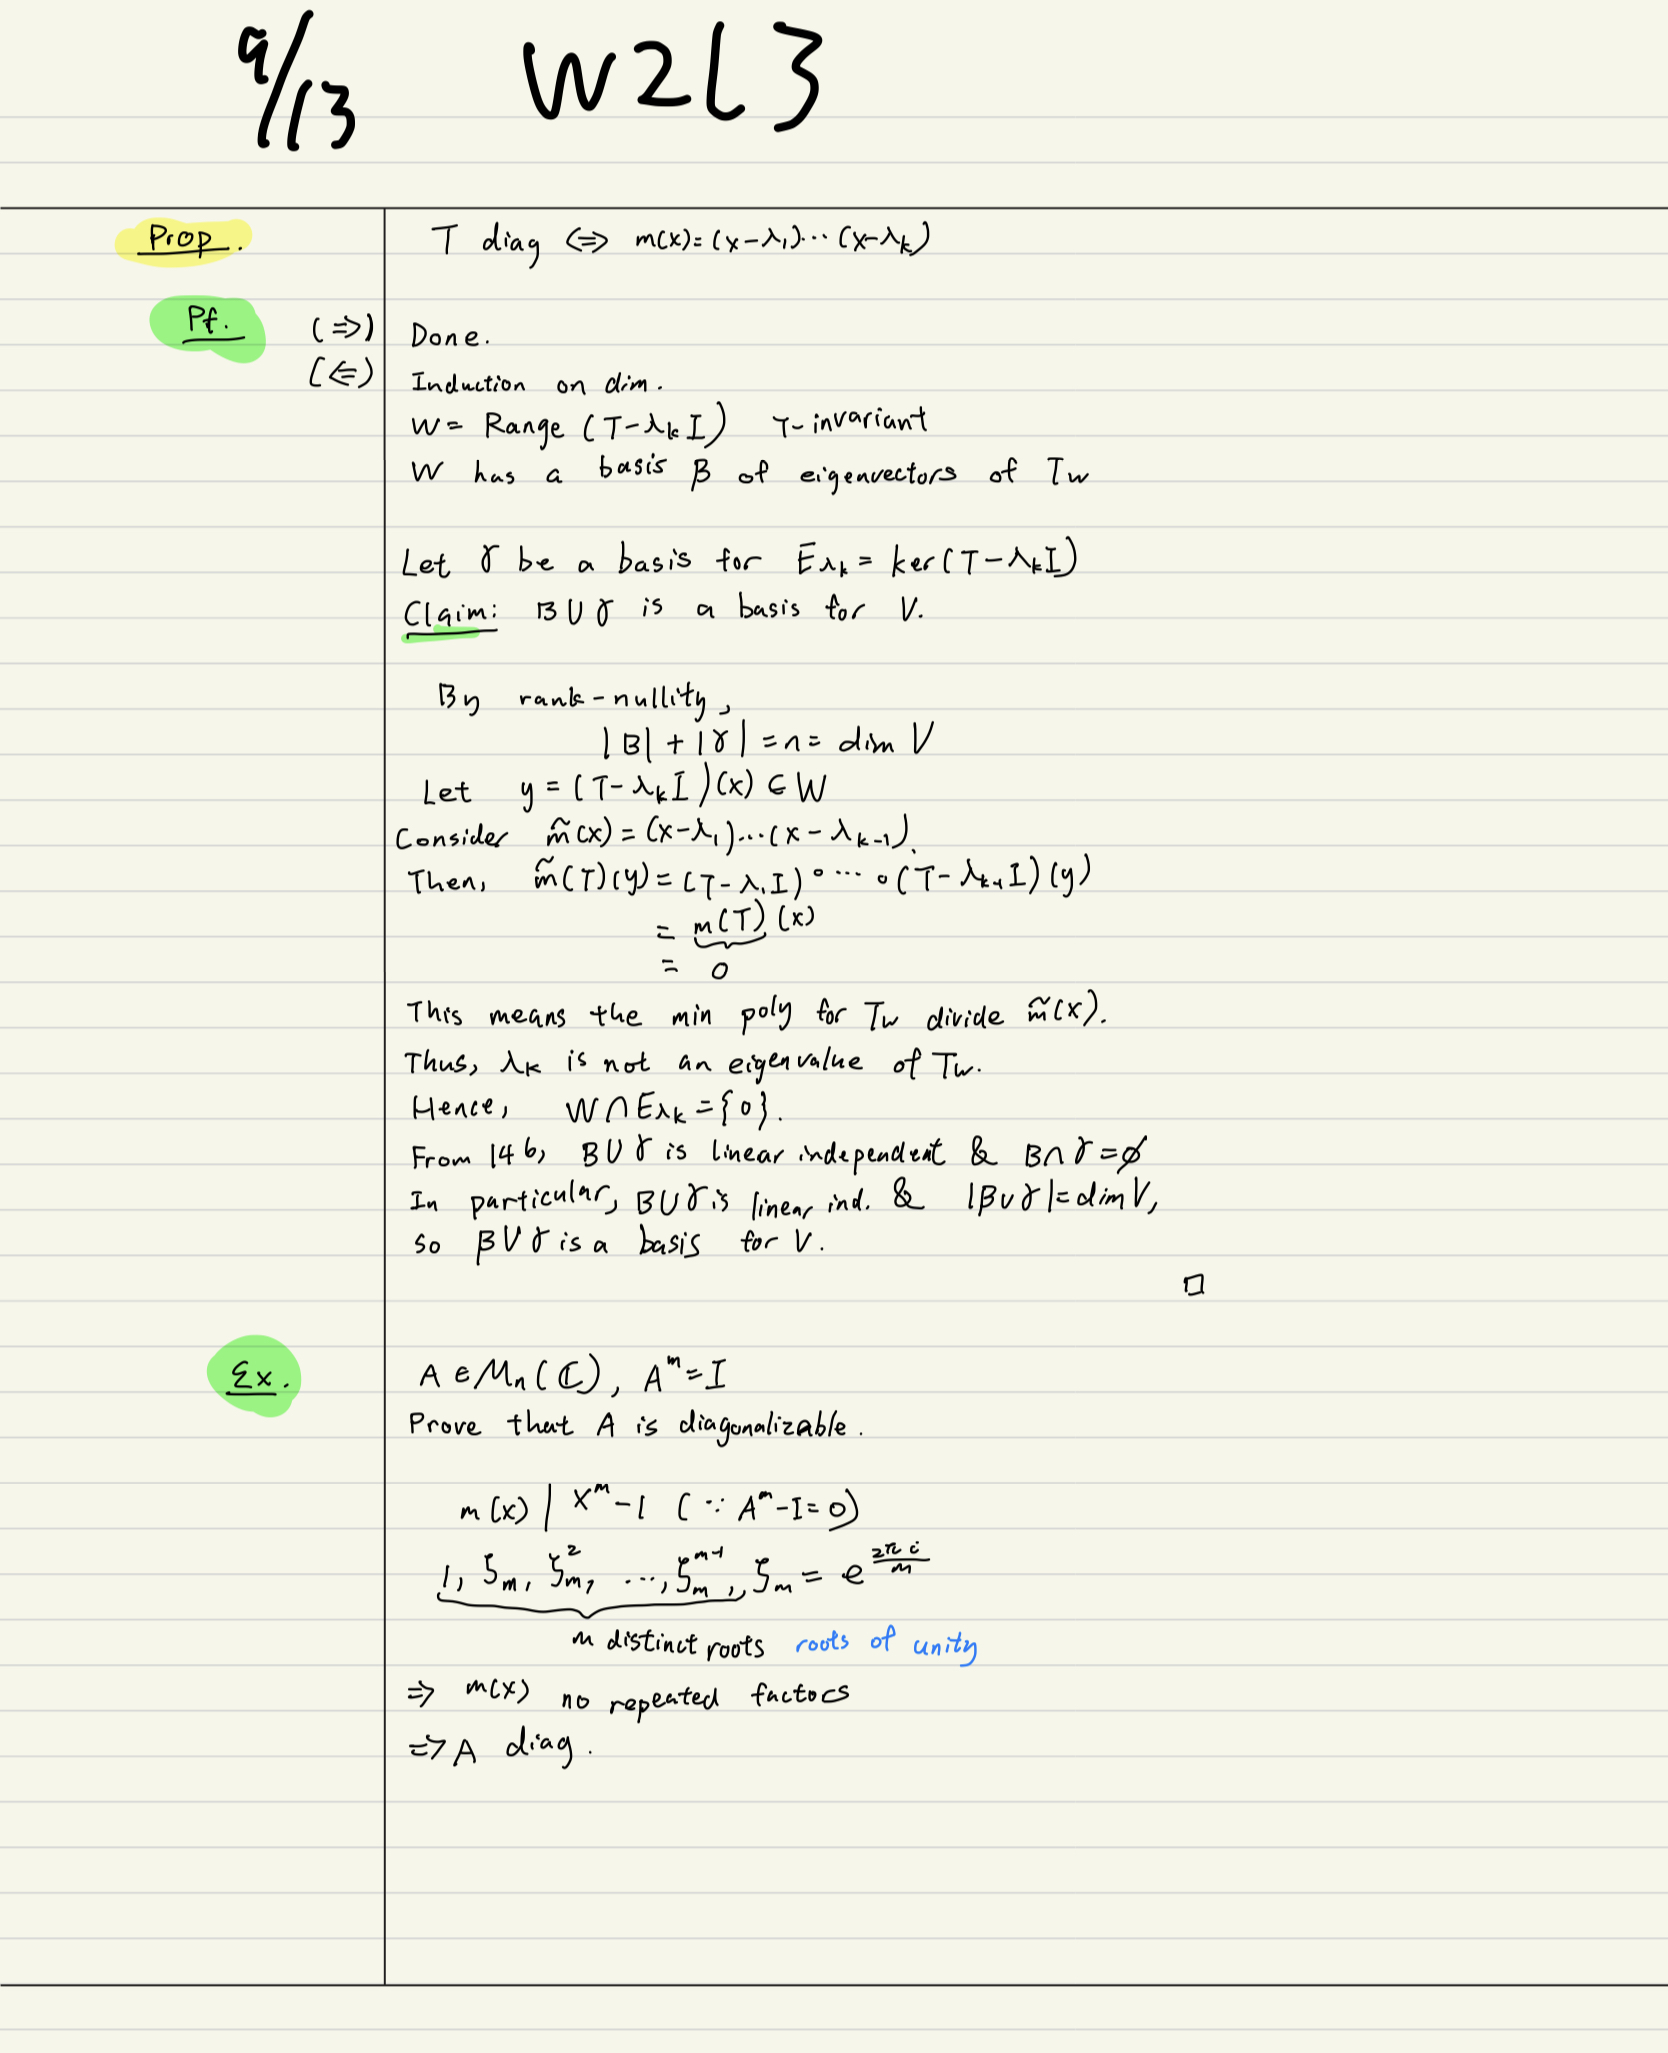 9/13 W2L3
Prop. T diag ⟺ m(x)=(x-λ₁)⋯(x-λₖ)
Pf. (⇒) Done.
(⇐) Induction on dim.
W = Range (T-λₖI) T-invariant
W has a basis β of eigenvectors of T_W
Let γ be a basis for E_λₖ = ker(T-λₖI)
Claim: β∪γ is a basis for V.
By rank-nullity,
|β|+|γ|=n= dim V
Let y=(T-λₖI)(x)∈W
Consider m̃(x)=(x-λ₁)...(x-λₖ₋₁).
Then, m̃(T)(y)=(T-λ₁I)∘⋯∘(T-λₖ₋₁I)(y)
= m(T)(x)
= 0
This means the min poly for T_W divide m̃(x).
Thus, λₖ is not an eigenvalue of T_W.
Hence, W∩E_λₖ={0}.
From 146, β∪γ is linear independent & β∩γ=∅
In particular, β∪γ is linear ind. & |β∪γ|=dim V,
so β∪γ is a basis for V.
□
Ex. A∈Mₙ(ℂ), Aᵐ=I
Prove that A is diagonalizable.
m(x) | xᵐ-1 (∵ Aᵐ-I=0)
1, ζₘ, ζₘ², ..., ζₘᵐ⁻¹, ζₘ = e^(2πi/m)
m distinct roots roots of unity
⇒ m(x) no repeated factors
⇒ A diag.